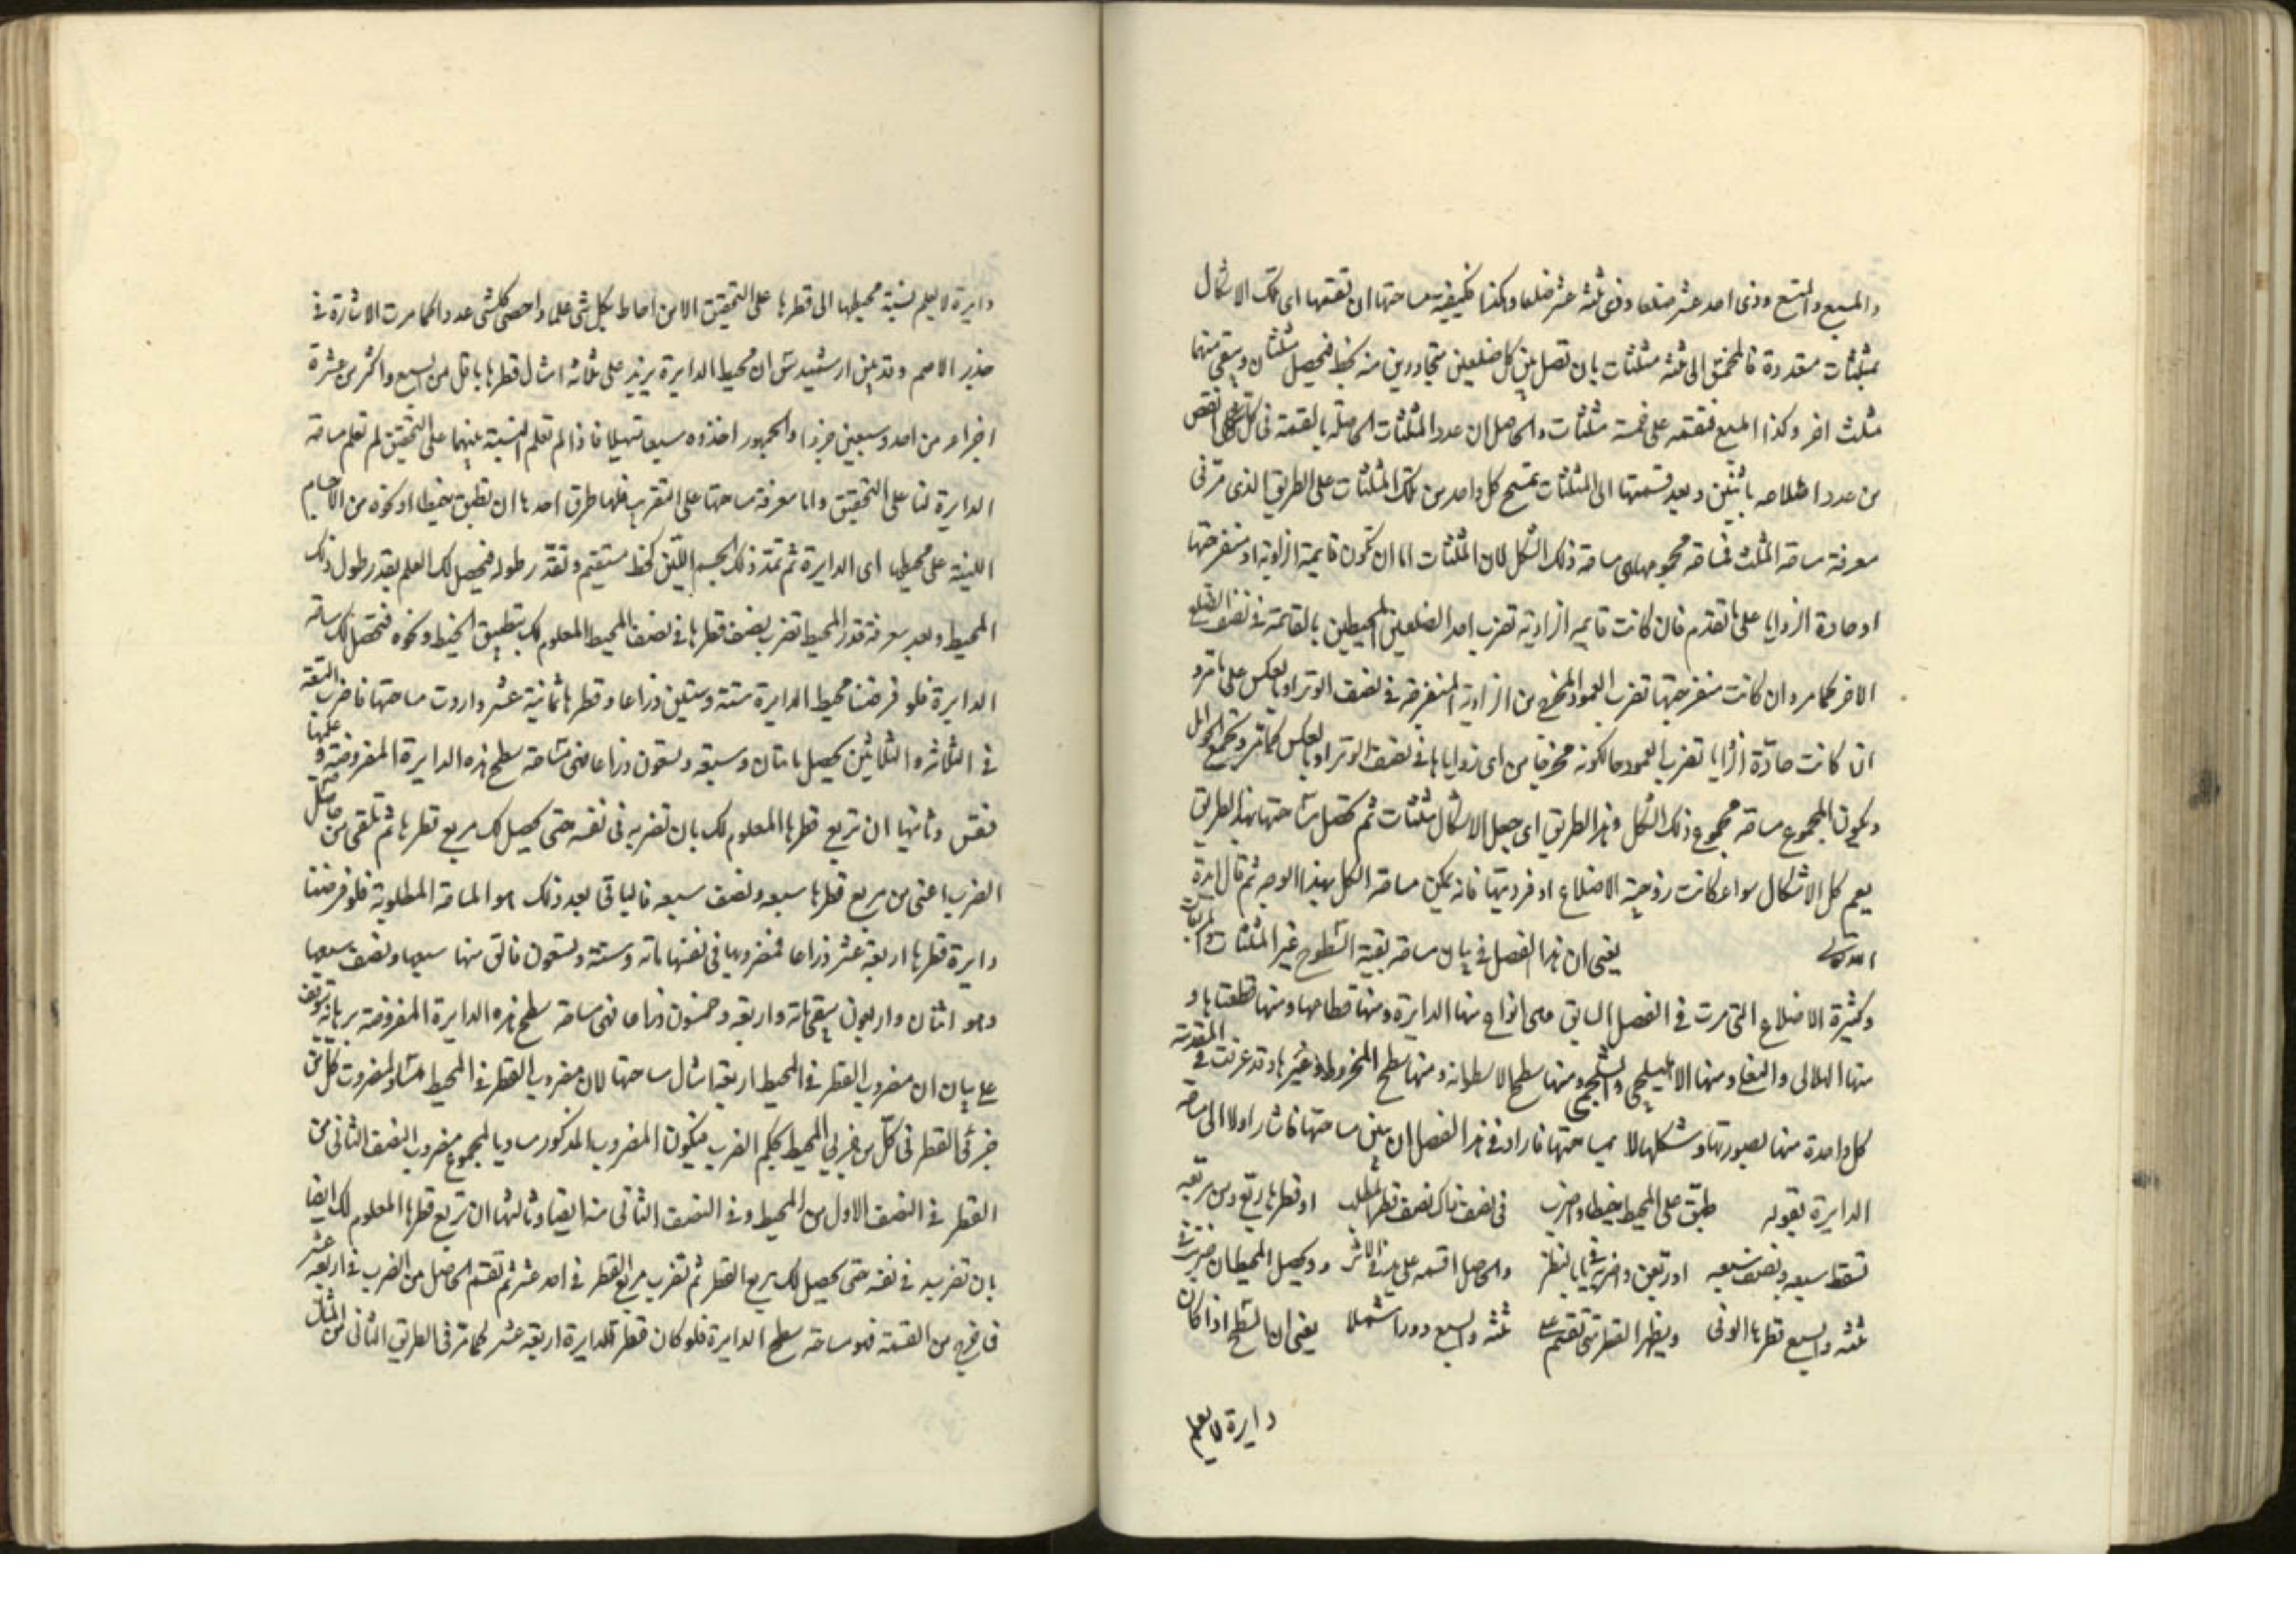 والمسبع والمتسع وذى احد عشر ضلعا وذى ثلثه عشر ضلعا وهكذا فكيفيته مساحتها ان تقسمها اى تلك الاشكال
بمثلثات متعددة فالمخمس الى ثلثه مثلثات بان تصل بين كل ضلعين متجاورين منه بخط فيحصل مثلثان ويبقى منهما
مثلث اخر وكذا المسبع فتقسمه على خمسة مثلثات والحاصل ان عدد المثلثات الحاصله بالقسمة فى كل شكل انقص
من عدد اضلاعه باثنين وبعد قسمتها الى المثلثات تمسح كل واحد من تلك المثلثات على الطريق الذى مر فى
معرفة مساحة المثلث فمساحة مجموعها هى مساحة ذلك الشكل لان المثلثات اما ان تكون قايمة الزاوية او منفرجتها
او حادة الزوايا على ما تقدم فان كانت قايمه الزاويه تضرب احد الضلعين المحيطين بالقائمة فى نصف الضلع
الاخر كما مر وان كانت منفرجتها تضرب العمود المخرج من الزاوية المنفرجة فى نصف الوتر او بالعكس على ما مر و
ان كانت حادّة الزوايا تضرب العمود حالكونه مخرجا من اى زواياها فى نصف الوتر او بالعكس كما مر وتجمع الحواصل
ويكون المجموع مساحة مجموع ذلك الشكل وهذا الطريق اى جعل الاشكال مثلثات ثم تحصيل مساحتها بهذا الطريق
يعم كل الاشكال سواء كانت زوجية الاضلاع او فرديتها فانه يمكن مساحة الكل بهذا الوجه ثم قال
يعنى ان هذا الفصل فى بيان مساحة بقية السطوح غير المثلثات والمربعات
وكثيرة الاضلاع التى مرت فى الفصل السابق وهى انواع منها الدايرة ومنها قطاعها ومنها قطعتاها و
منها الهلالى والنعلى ومنها الاهليلجى والشلجمى ومنها سطح الاسطوانه ومنها سطح المخروط وغيرها وقد عرفت فى المقدمة
كل واحدة منها بصورتها وشكلها لا بمساحتها فاراد فى هذا الفصل ان يبين مساحتها فاشار اولا الى مساحة
الدايرة بقوله طبق على المحيط خيطا واضرب فى نصف ذاك نصف قطر تطلب او قطرها ربع ومن مربعه
تسقط سبعه ونصف سبعه او ربعن واضربه فى يا بالنظر والحاصل اقسمه على يد فى الاثر ويحصل المحيط ان ضربت فى
ثلثه والسبع قطرها الوفى ويظهر القطر متى تقسم على ثلثه والسبع دورا شملا يعنى ان السطح اذا كان
دايرة لا يعلم
دايرة لا يعلم نسبة محيطها الى قطرها على التحقيق الا من احاط بكل شى علما واحصى كل شى عددا كما مرت الاشارة فى
جذر الاصم وقد بين ارشميدس ان محيط الدايرة يزيد على ثلاثة امثال قطرها باقل من سبع واكثر من عشرة
اجزاء من احد وسبعين جزءا والجمهور اخذوه سبعا تسهيلا فاذا لم تعلم النسبة بينهما على التحقيق لم تعلم مساحة
الدايرة لنا على التحقيق واما معرفة مساحتها على التقريب فلها طرق احدها ان تطبق خيطا او نحوه من الاجسام
اللينة على محيطها اى الدايرة ثم تمد ذلك الجسم اللين كخط مستقيم وتقدر طوله فيحصل لك العلم بقدر طول ذلك
المحيط وبعد معرفة قدر المحيط تضرب نصف قطرها فى نصف المحيط المعلوم لك بتطبيق الخيط ونحوه فتحصل لك مساحة
الدايرة فلو فرضنا محيط الدايرة ستة وستين ذراعا وقطرها ثمانية عشر واردت مساحتها فاضرب التسعة
فى الثلاثه والثلاثين يحصل ماتان وسبعه وتسعون ذراعا فهى مساحة سطح هذه الدايرة المفروضة وعليها
فقس وثانيها ان تربع قطرها المعلوم لك بان تضربه فى نفسه حتى يحصل لك مربع قطرها ثم تلقى من حاصل
الضرب اعنى من مربع قطرها سبعه ونصف سبعه فالباقى بعد ذلك هو المساحة المطلوبة فلو فرضنا
دايرة قطرها اربعة عشر ذراعا فمضروبها فى نفسها ماته وستة وتسعون فالق منها سبعها ونصف سبعها
وهو اثنان واربعون يبقى ماته واربعه وخمسون ذراعا فهى مساحة سطح هذه الدايرة المفروضة برهانه توقف
على بيان ان مضروب القطر فى المحيط اربعة امثال مساحتها لان مضروب القطر فى المحيط مساو لمضروب كل من
جزئى القطر فى كل من جزئى المحيط بحكم الضرب فيكون المضروب المذكور مساويا لمجموع مضروب النصف الثانى من
القطر فى النصف الاول من المحيط وفى النصف الثانى منه ايضا وثالثها ان تربع قطرها المعلوم لك ايضا
بان تضربه فى نفسه حتى يحصل لك مربع القطر ثم تضرب مربع القطر فى احد عشر ثم تقسم الحاصل من الضرب فى اربعة عشر
فما خرج من القسمة فهو مساحة سطح الدايرة فلو كان قطر الدايرة اربعة عشر كما مر فى الطريق الثانى من المثال